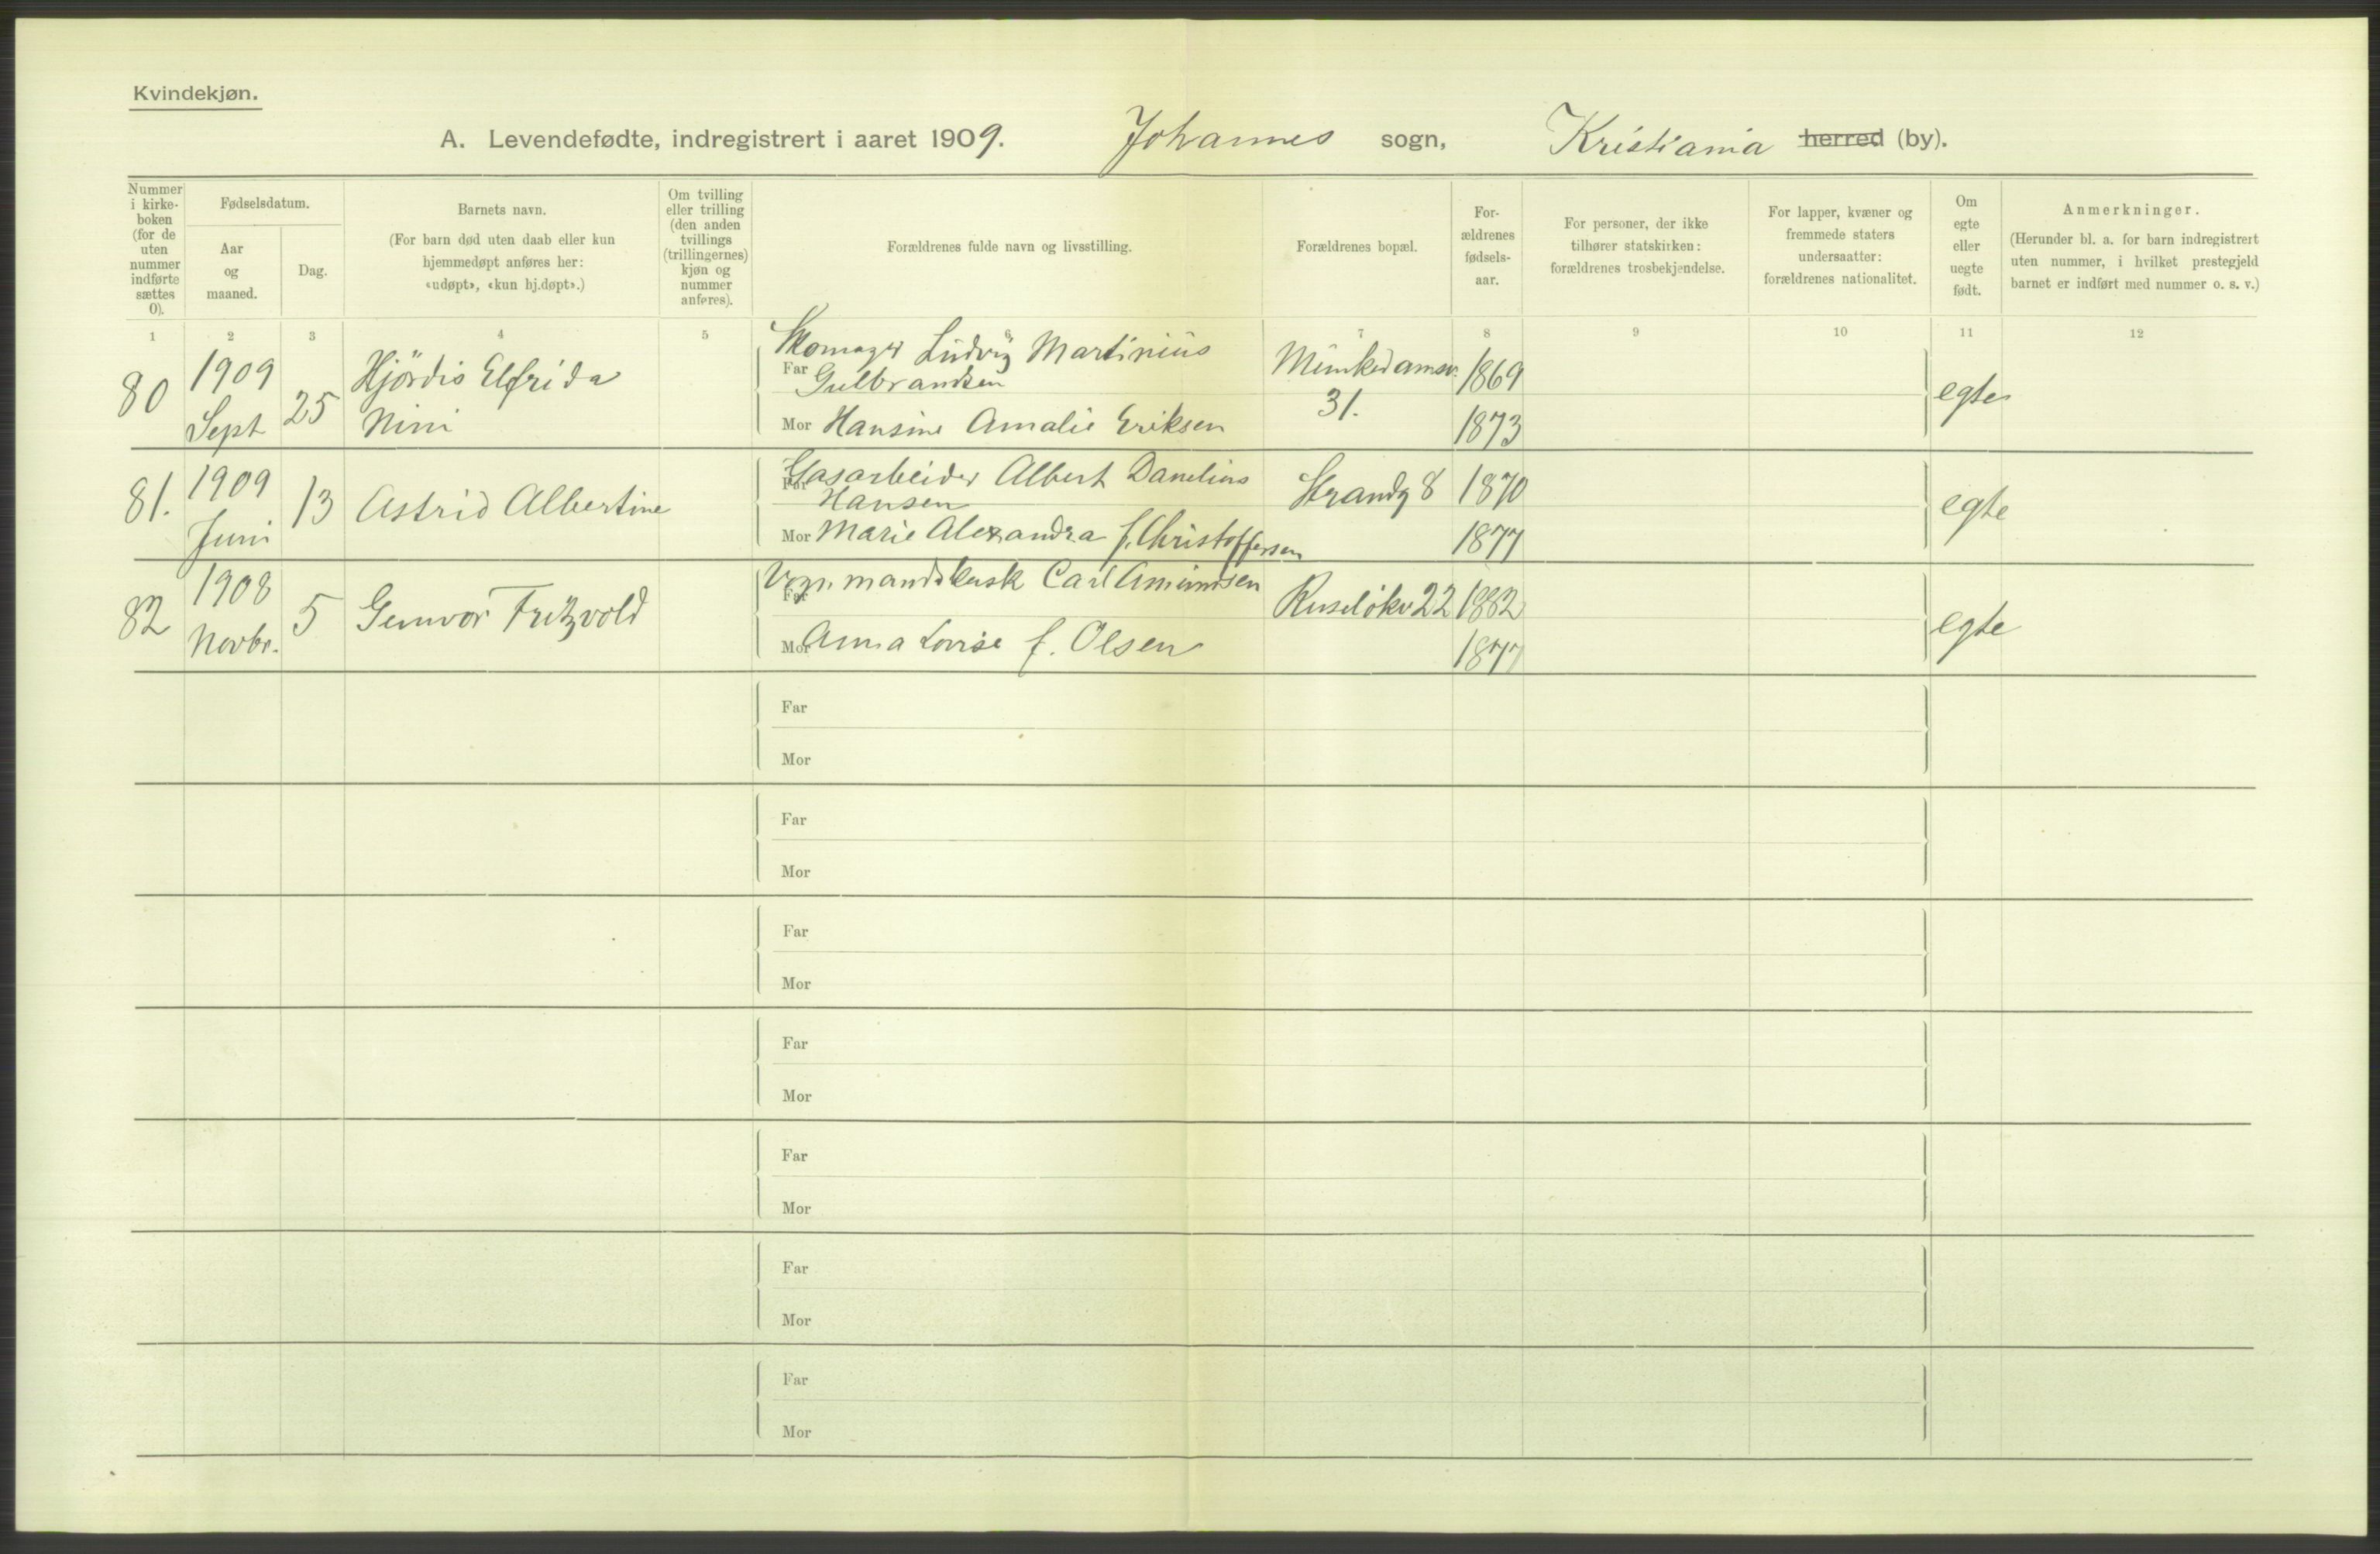 Kvindekjøn.
A. Levendefødte, indregistrert i aaret 1909. Johannes sogn, Kristiania herred (by).
Nummer i kirke-boken (for de uten nummer indførte sættes 0).
Fødselsdatum.
Aar og maaned.
Dag.
Barnets navn.
(For barn død uten daab eller kun hjemmedøpt anføres her: «udøpt», «kun hj.døpt».)
Om tvilling eller trilling (den anden tvillings (trillingernes) kjøn og nummer anføres).
Forældrenes fulde navn og livsstilling.
Forældrenes bopæl.
For-ældrenes fødsels-aar.
For personer, der ikke tilhører statskirken: forældrenes trosbekjendelse.
For lapper, kvæner og fremmede staters undersaatter: forældrenes nationalitet.
Om egte eller uegte født.
Anmerkninger.
(Herunder bl. a. for barn indregistrert uten nummer, i hvilket prestegjeld barnet er indført med nummer o. s. v.)
1 2 3 4 5 6 7 8 9 10 11 12
80 1909 Sept 25 Hjördis Elfrida Nini
Far Skomager Ludvig Martinius Gulbrandsen
Munkedamsv. 31. 1869
Mor Hansine Amalie Eriksen 1873
egte
81. 1909 Juni 13 Astrid Albertine
Far Gasarbeider Albert Danelius Hansen
Strandg 8 1870
Mor Marie Alexandra f. Christoffersen 1877
egte
82 1908 Novbr. 5 Gunvor Fritzvold
Far Vognmandskusk Carl Amundsen
Ruseløkv 22 1882
Mor Anna Lovise f. Olsen 1877
egte
Far
Mor
Far
Mor
Far
Mor
Far
Mor
Far
Mor
Far
Mor
Far
Mor